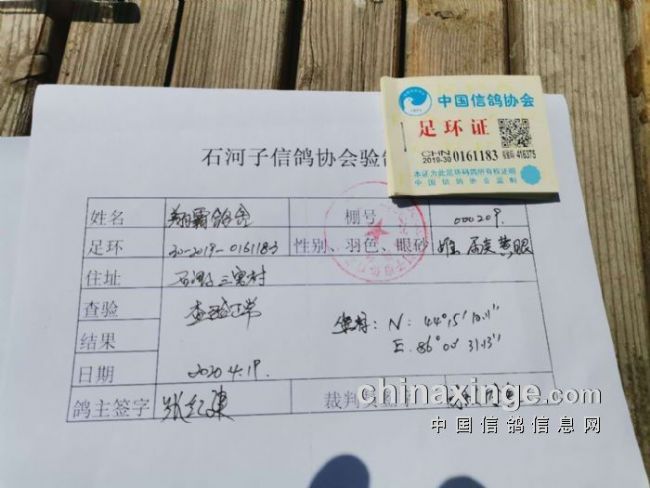 中国信鸽协会
足环证
CHN
2019-30 0161183 416375
本证为此足环码鸽所有权证明
中国信鸽协会监制
石河子信鸽协会验
姓名 翔霸鸽舍 棚号 000209.
足环 30-2019-0161183 性别、羽色、眼砂 雄 黄眼
住址 石河子三宫村
查验 查验正常
结果 坐标: N: 44°15'
E: 86°00' 31.13''
日期 2020.4.19.
鸽主签字 裁判员
www.chinaxinge.com
中国信鸽信息网